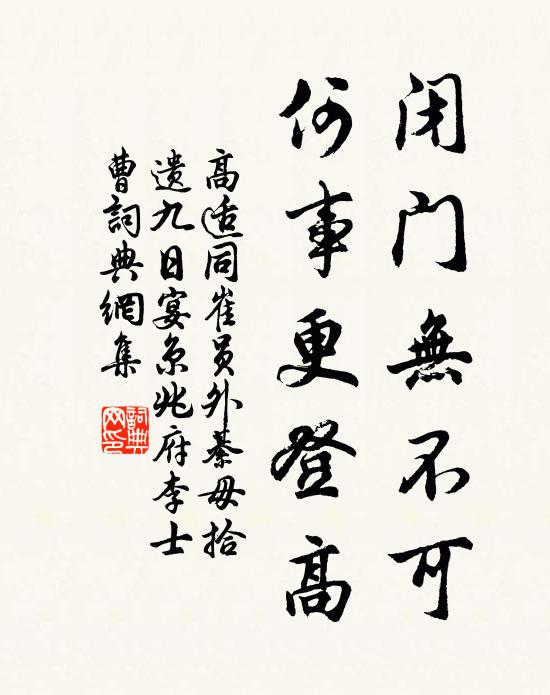 闭门無不可
何事更登高
高适同崔員外綦毋拾
遗九日宴京兆府李士
曹詞典網集
詞典
网印